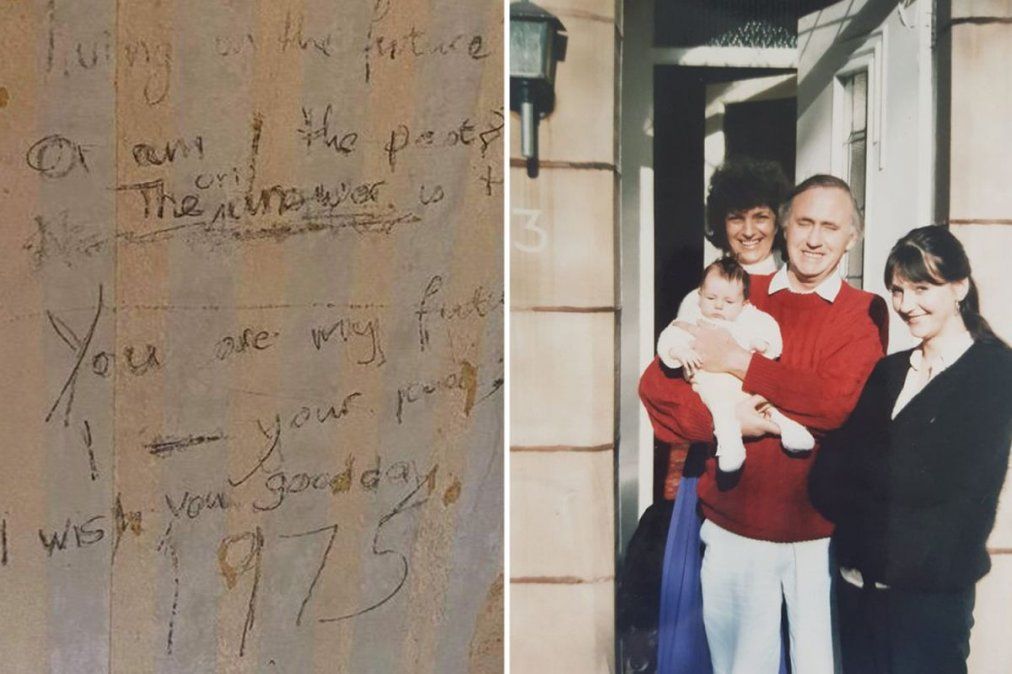 living in the future
Or am I the past?
The only answer is t
You are my futu
I — your
I wish you good day.
1975
3